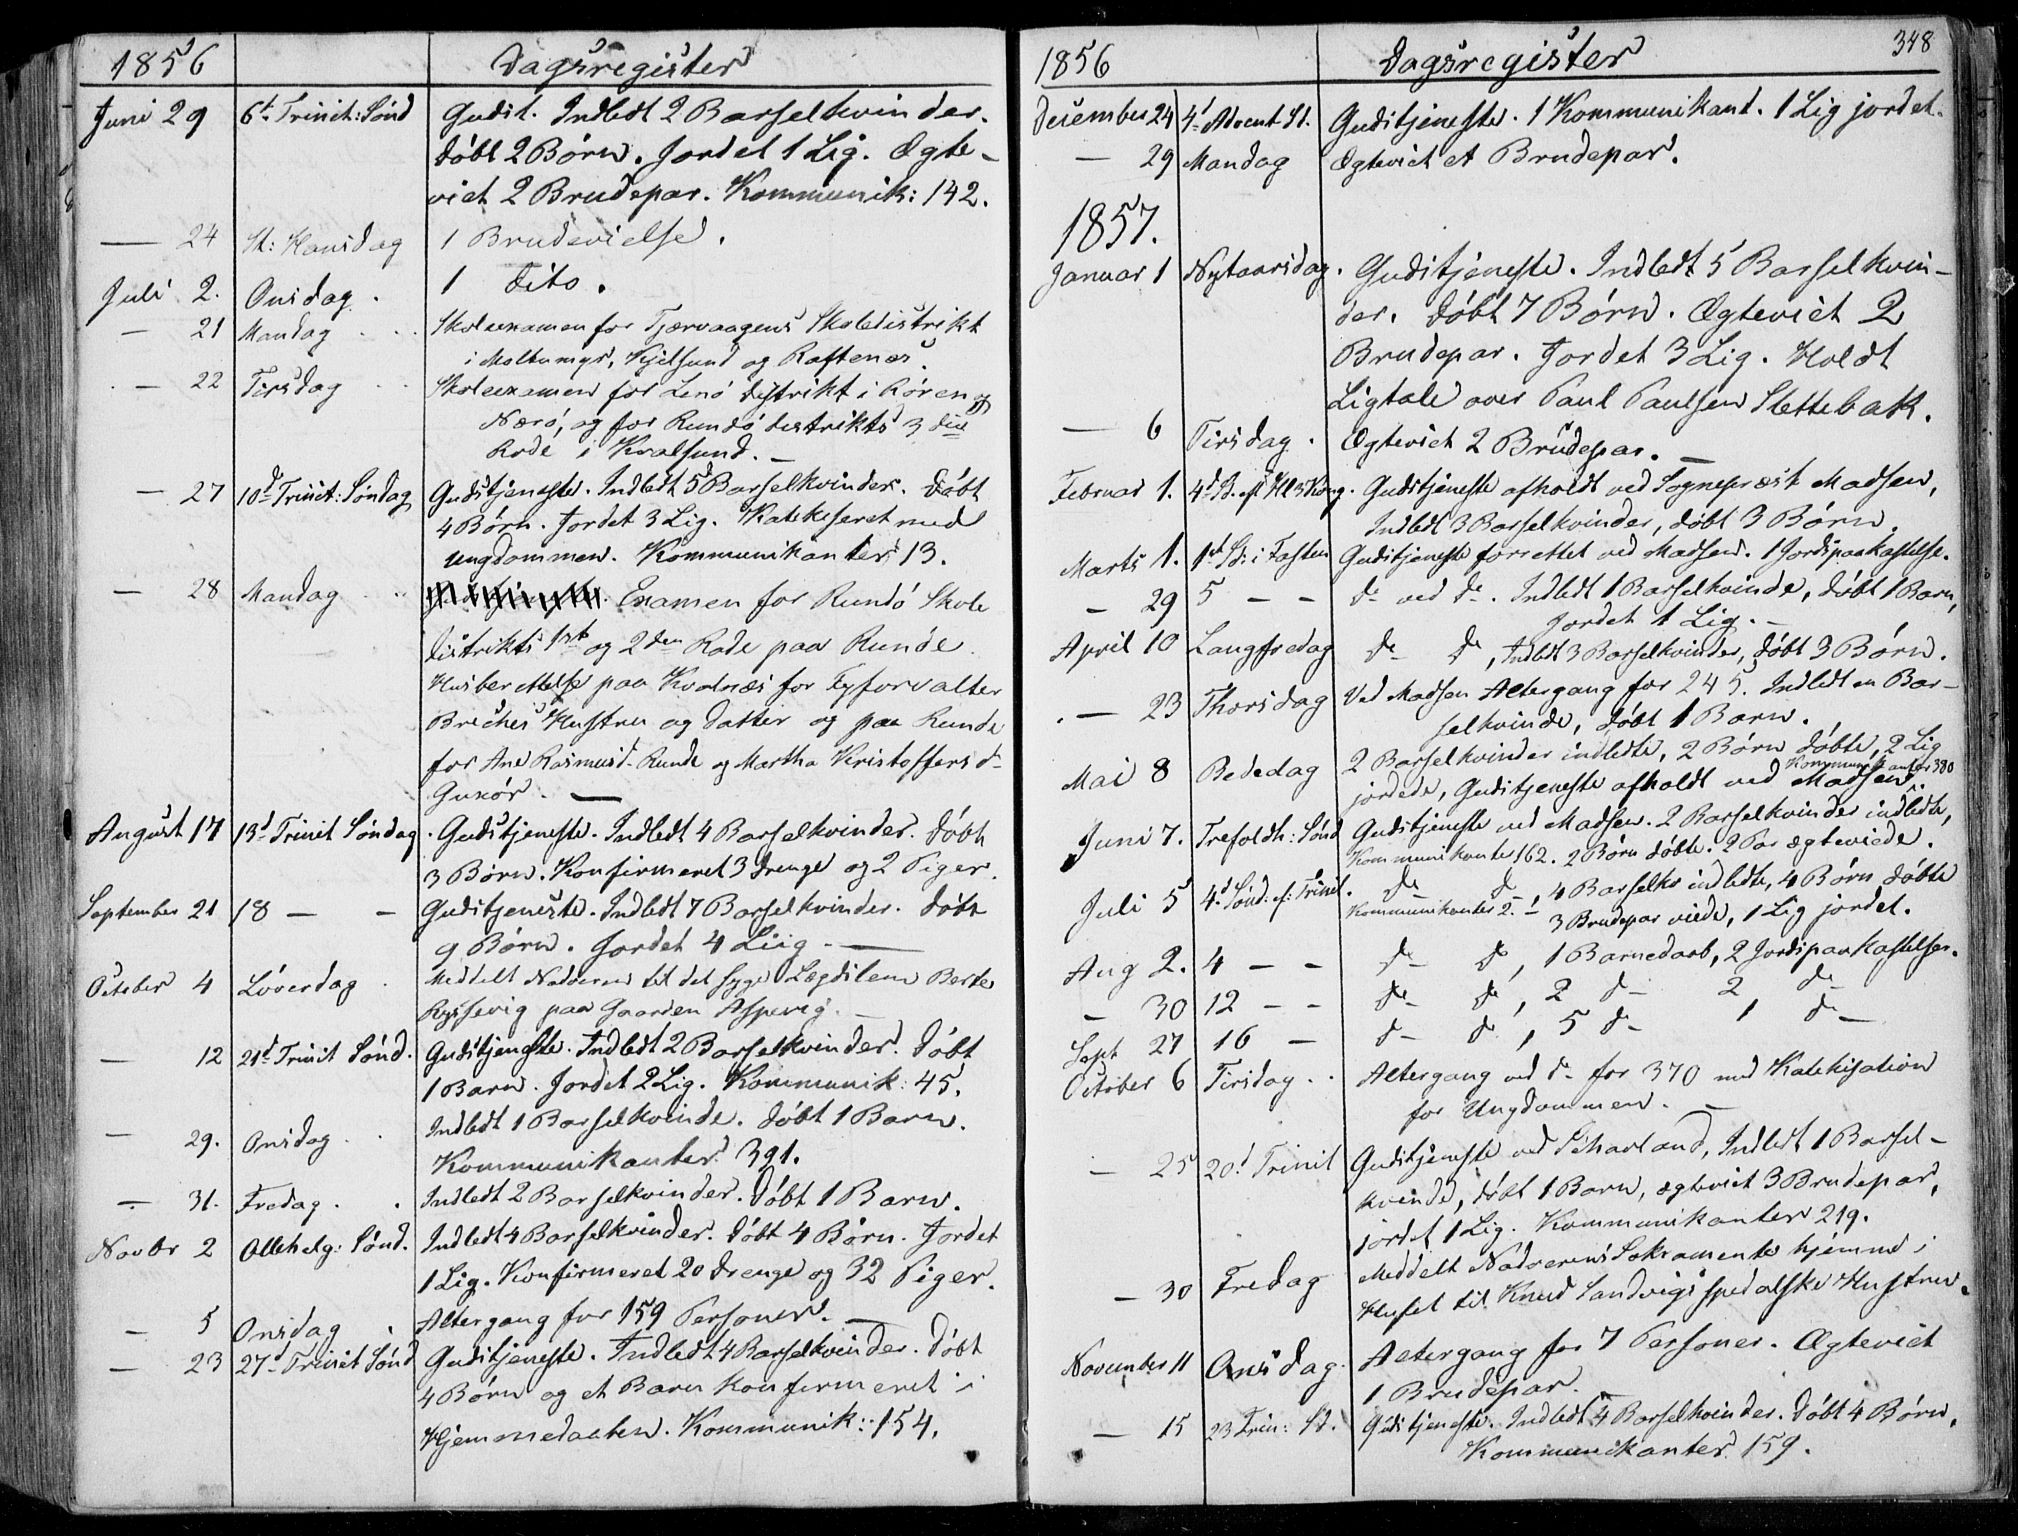 1856 Dagsregister
Juni 29 6t. Trinit: Sönd Gudst. Indledt 2 Barselkvinder.
Döbt 2 Börn. Jordet 1 Lig. Ægte-
viet 2 Brudepar. Kommunik: 142.
— 24 St: Hansdag 1 Brudevielse.
Juli 2. Onsdag. 1 Dito.
— 21 Mandag Skoleexamen for Tjørvaagens Skoledistrikt
i Moltumyr, Kjelsund og Raftenes.
— 22 Tirsdag Skoleexamen for Lenö Distrikt i Rören og
Nærö, og for Rundö distrikts 3die
Rode i Kvalsund. —
— 27 10d Trinit: Söndag Gudstjeneste. Indledt 5 Barselkvinder. Döbt
4 Börn. Jordet 3 Lig. Katekiseret med
Ungdommen. Kommunikanter 13.
— 28 Mandag Examen for Rundö Skole
Distrikts 1ste og 2den Rode paa Runde.
Husberettelse paa Kvalnæs for Tyforvalter
Hustru og Datter og paa Runde
for Ane Rasmusd. Runde og Martha Kristoffersd.
—
August 17 13d Trinit Söndag. Gudstjeneste. Indledt 4 Barselkvinder. Döbt
3 Börn. Konfirmeret 3 Drenge og 2 Piger.
September 21 18 — — Gudstjeneste. Indledt 7 Barselkvinder. Döbt
9 Börn. Jordet 4 Liig. —
October 4 Löverdag. Meddelt Nadveren til det syge Lægdslem Berte
paa Gaarden Aspevig. —
— 12 21d Trinit Sönd. Gudstjeneste. Indledt 2 Barselkvinder. Döbt
1 Barn. Jordet 2 Lig. Kommunik: 45.
— 29. Onsdag. Indledt 1 Barselkvinde. Döbt 1 Barn.
Kommunikanter 391.
— 31. Fredag. Indledt 2 Barselkvinder. Döbt 1 Barn.
Novbr 2 Allehelg: Sönd. Indledt 4 Barselkvinder. Döbt 4 Börn. Jordet
1 Lig. Konfirmeret 20 Drenge og 32 Piger.
— 5 Onsdag. Altergang for 159 Personer. —
— 23 27d Trinit Sönd Gudstjeneste. Indledt 4 Barselkvinder. Döbt
4 Börn og et Barn konfirmeret i
Hjemmedaaben. Kommunik: 154.
1856 Dagsregister 348
December 24 4d Advent Sd. Gudstjeneste. 1 Kommunikant. 1 Lig jordet.
— 29 Mandag Ægteviet et Brudepar.
1857.
Januar 1 Nytaarsdag. Gudstjeneste. Indledt 5 Barselkvin-
der. Döbt 7 Börn. Ægteviet 2
Brudepar. Jordet 3 Lig. Holdt
Ligtale over Paul Paulsen Slettebak.
— 6 Tirsdag. Ægteviet 2 Brudepar. —
Februar 1. 4d S. ef Hl 3 Kong. Gudstjeneste afholdt ved Sognepræst Madsen,
Indledt 3 Barselkvinder, döbt 3 Börn.
Marts 1. 1st Sö: i Fasten Gudstjeneste forrettet ved Madsen. 1 Jordspaakastelse.
— 29 5 — — do ved do. Indledt 1 Barselkvinde, döbt 1 Barn,
Jordet 1 Lig. —
April 10 Langfredag do do, Indledt 3 Barselkvinder, döbt 3 Börn.
— 23 Thorsdag Ved Madsen Altergang for 245. Indledt en Bar-
selkvinde, döbt 1 Barn.
Mai 8 Bededag 2 Barselkvinder indledte, 2 Börn döbte, 2 Lig
Kommunikanter 380
jordede, Gudstjeneste afholdt ved Madsen.
Juni 7. Trefoldh: Sönd Gudstjeneste ved Madsen. 2 Barselkvinder indledte,
Kommunikanter 162. 2 Börn döbte. 2 Par ægteviede.
Juli 5 4d Sönd. ef: Trinit. do do 4 Barselkv indledte, 4 Börn döbte
Kommunikanter 2. 3 Brudepar viede, 1 Lig jordet.
Aug 2. 4 — — do do, 1 Barnedaab, 2 Jordspaakastelser.
— 30 12 — — do do, 2 do 2 do
Sept 27 16 — do do, 5 do 1 do
October 6 Tirsdag.. Altergang ved do for 370 med Katekisation
for Ungdommen. —
— 25 20d Trinit Gudstjeneste ved Indledt 1 Barsel-
kvinde, döbt 1 Barn, ægteviet 3 Brudepar,
jordet 1 Lig. Kommunikanter 219.
— 30 Fredag Meddelt Nadverens Sakramente hjemme i
Huset til Knud Sandvigs spedalske Hustru.
November 11 Onsdag. Altergang for 7 Personer. Ægteviet
1 Brudepar.
— 15 23 Trin: Sd. Gudstjeneste. Indledt 4 Barselkvinder. Döbt 4 Börn.
Kommunikanter 159.